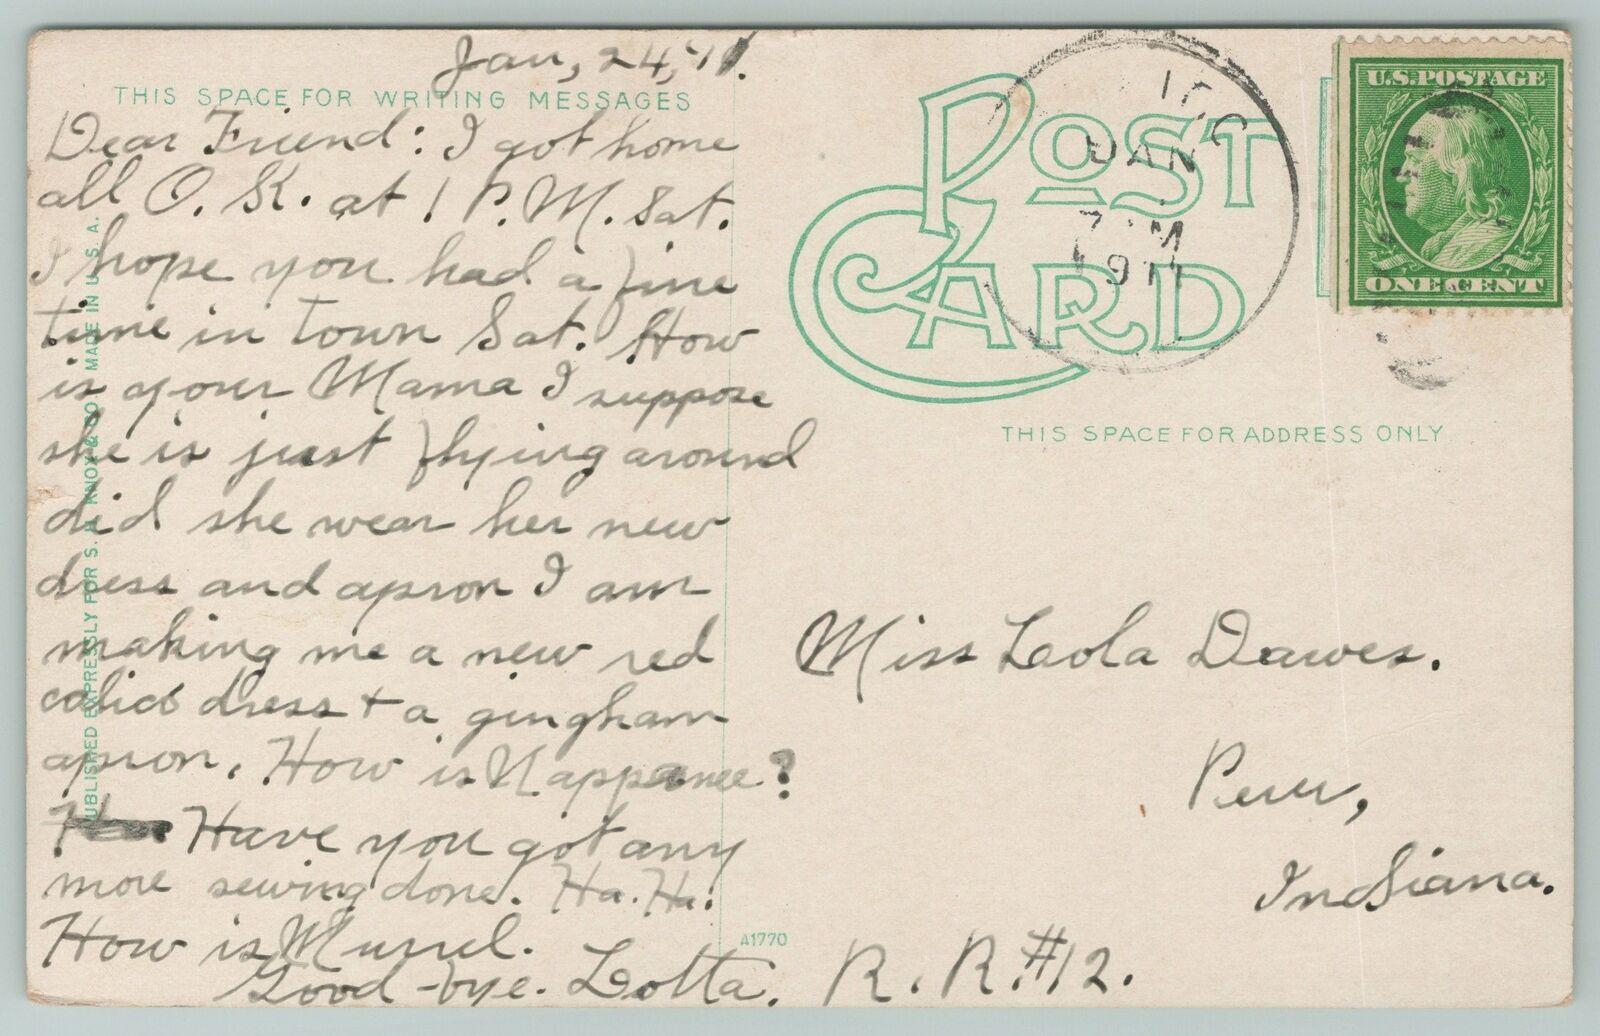 Jan, 24, '11.
THIS SPACE FOR WRITING MESSAGES
Dear Friend: I got home
all O. K. at 1 P. M. Sat.
I hope you had a fine
time in town Sat. How
is your Mama I suppose
she is just flying around
did she wear her new
dress and apron I am
making me a new red
calico dress + a gingham
apron. How is Nappanee?
Have you got any
more sewing done. Ha. Ha.
How is Murrel.
Good-bye. Lotta.
PUBLISHED EXPRESSLY FOR S. H. KNOX & CO. MADE IN U. S. A.
A1770
POST CARD
JAN
7 M
1911
U.S. POSTAGE
ONE CENT
THIS SPACE FOR ADDRESS ONLY
Miss Leola Dawes.
Peru,
Indiana.
R. R. #12.